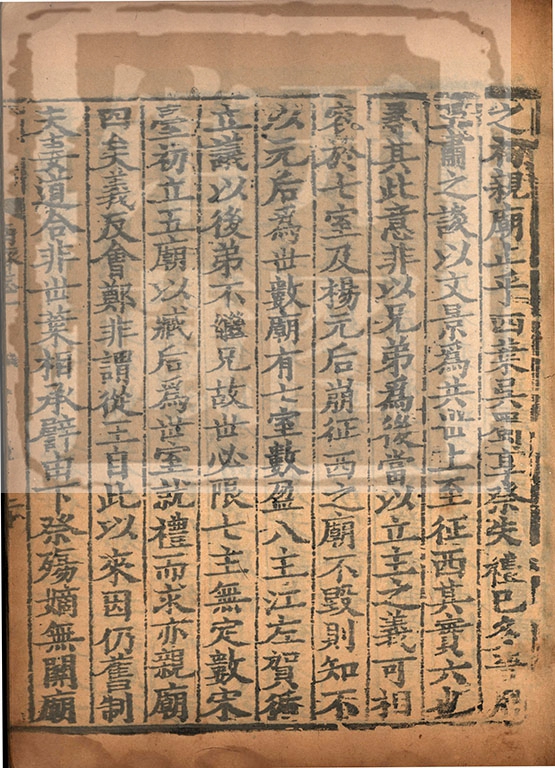 之初親廟止乎四葉吳四刻莫祭失禮巳多事用
王肅之談以文景爲共世上至征西其實六也
尋其此意非以兄弟爲後當以立主之義可相
容於七室及楊元后崩征西之廟不毀則知不
以元后爲世數廟有七室數盈八主江左賀循
立議以後弟不繼兄故世必限七主無定數宋
臺初立五廟以臧后爲世室就禮而求亦親廟
四矣義反會鄭非謂從王自此以來因仍舊制
夫妻道合非世葉相承譬由下祭殤嫡無關廟